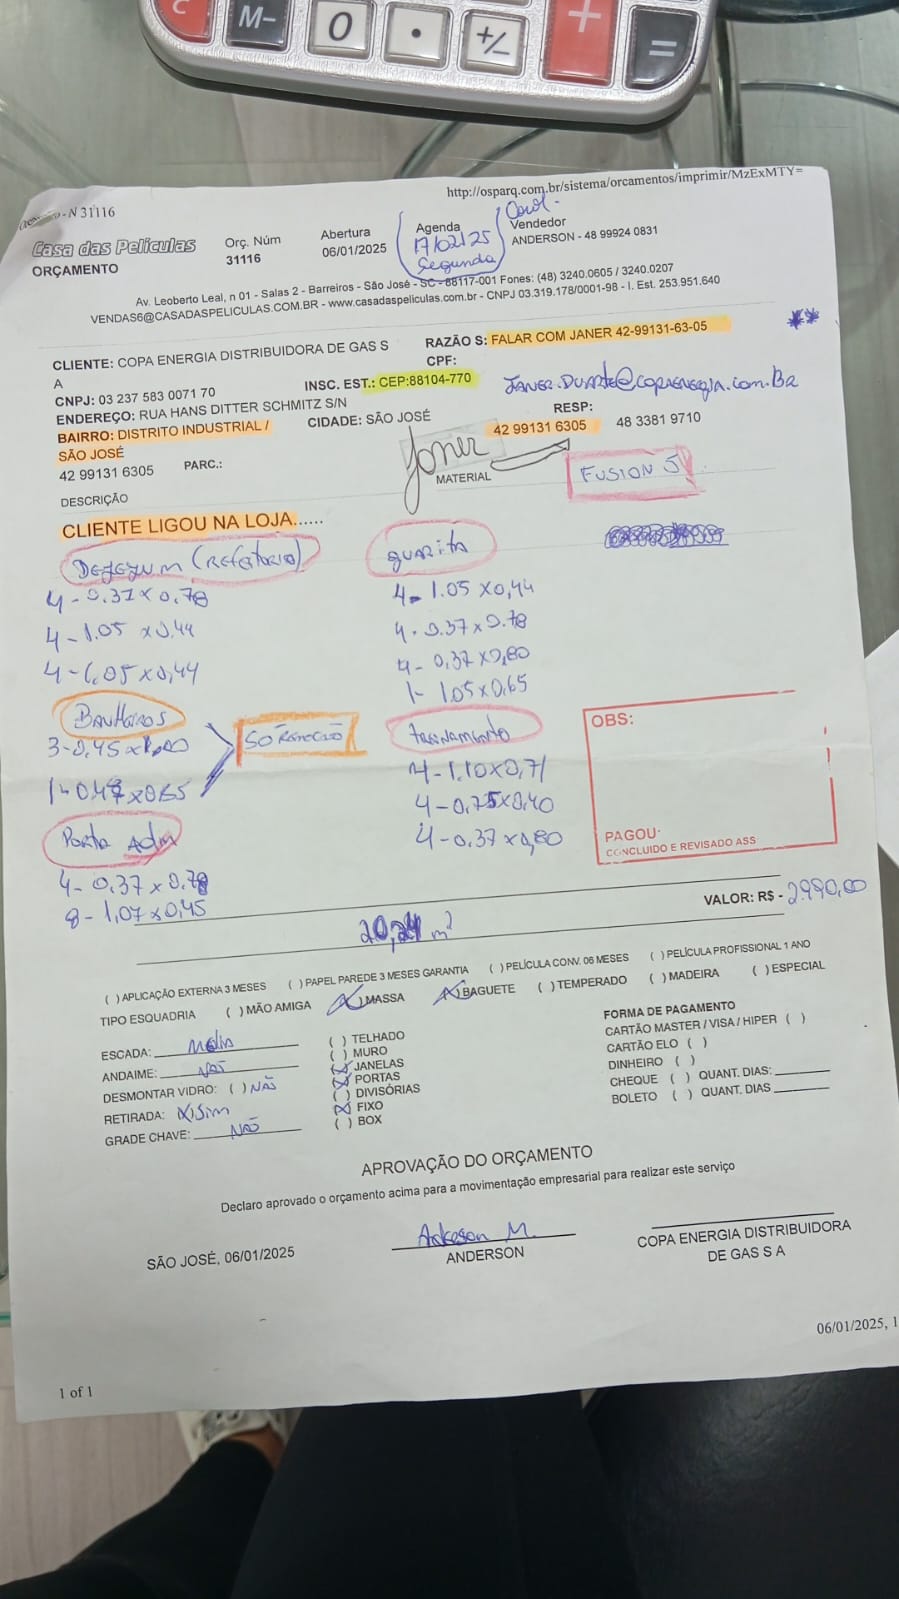 C
M-
0
.
+/-
+
=
http://osparq.com.br/sistema/orcamentos/imprimir/MzExMTY=
- N 31116
Casa das Películas
ORÇAMENTO
Orç. Núm
31116
Abertura
06/01/2025
Agenda
17/02/25
Segunda
Vendedor
ANDERSON - 48 99924 0831
Av. Leoberto Leal, n 01 - Salas 2 - Barreiros - São José - SC - 88117-001 Fones: (48) 3240.0605 / 3240.0207
VENDAS6@CASADASPELICULAS.COM.BR - www.casadaspeliculas.com.br - CNPJ 03.319.178/0001-98 - I. Est. 253.951.640
CLIENTE: COPA ENERGIA DISTRIBUIDORA DE GAS S
A
RAZÃO S: FALAR COM JANER 42-99131-63-05
CPF:
CNPJ: 03 237 583 0071 70
INSC. EST.: CEP:88104-770
JANER.DUARTE@COPAENERGIA.com.BR
ENDEREÇO: RUA HANS DITTER SCHMITZ S/N
RESP:
BAIRRO: DISTRITO INDUSTRIAL /
SÃO JOSÉ
CIDADE: SÃO JOSÉ
42 99131 6305
48 3381 9710
42 99131 6305
PARC.:
Janer
MATERIAL
FUSION 5
DESCRIÇÃO
CLIENTE LIGOU NA LOJA......
DEJEJUM (REFEITORIO)
4 - 0.37 x 0,78
4 - 1.05 x 0,44
4 - 1,05 x 0,44
guarita
4 - 1.05 x 0,44
4 - 0.37 x 0.78
4 - 0,37 x 0,80
1 - 1.05 x 0,65
BANHEIROS
3 - 0,45 x 1,00
SÓ REMOÇÃO
Porta Adm
4 - 0.37 x 0.78
8 - 1,07 x 0,45
treinamento
4 - 1.10 x 0,71
4 - 0,75 x 0,40
4 - 0.37 x 0,80
OBS:
PAGOU:
CONCLUIDO E REVISADO ASS
m²
VALOR: R$ - 2.990,00
( ) APLICAÇÃO EXTERNA 3 MESES ( ) PAPEL PAREDE 3 MESES GARANTIA ( ) PELÍCULA CONV. 06 MESES ( ) PELÍCULA PROFISSIONAL 1 ANO
TIPO ESQUADRIA ( ) MÃO AMIGA (X) MASSA (X) BAGUETE ( ) TEMPERADO ( ) MADEIRA ( ) ESPECIAL
ESCADA: Média
ANDAIME: NÃO
DESMONTAR VIDRO: ( ) NÃO
RETIRADA: (X) Sim
GRADE CHAVE: NÃO
( ) TELHADO
( ) MURO
(X) JANELAS
(X) PORTAS
( ) DIVISÓRIAS
(X) FIXO
( ) BOX
FORMA DE PAGAMENTO
CARTÃO MASTER / VISA / HIPER ( )
CARTÃO ELO ( )
DINHEIRO ( )
CHEQUE ( ) QUANT. DIAS:
BOLETO ( ) QUANT. DIAS
APROVAÇÃO DO ORÇAMENTO
Declaro aprovado o orçamento acima para a movimentação empresarial para realizar este serviço
SÃO JOSÉ, 06/01/2025
ANDERSON
COPA ENERGIA DISTRIBUIDORA
DE GAS S A
06/01/2025, 1
1 of 1